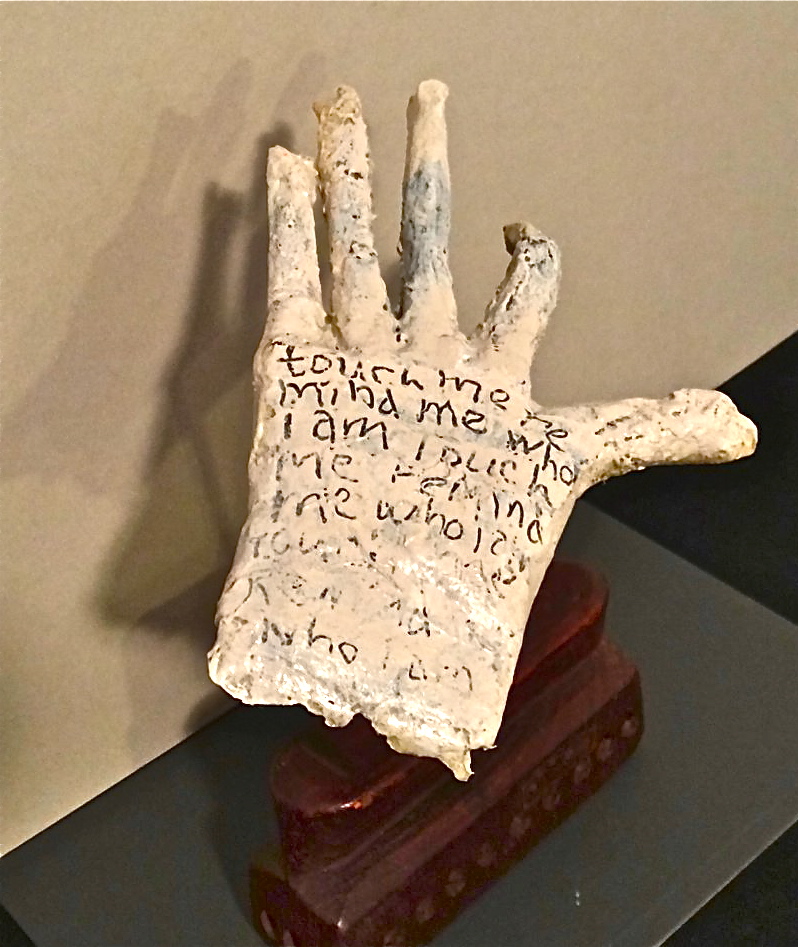 touch me re
mind me who
I am touch
me remind
me who I am
touch me
remind me
who I am